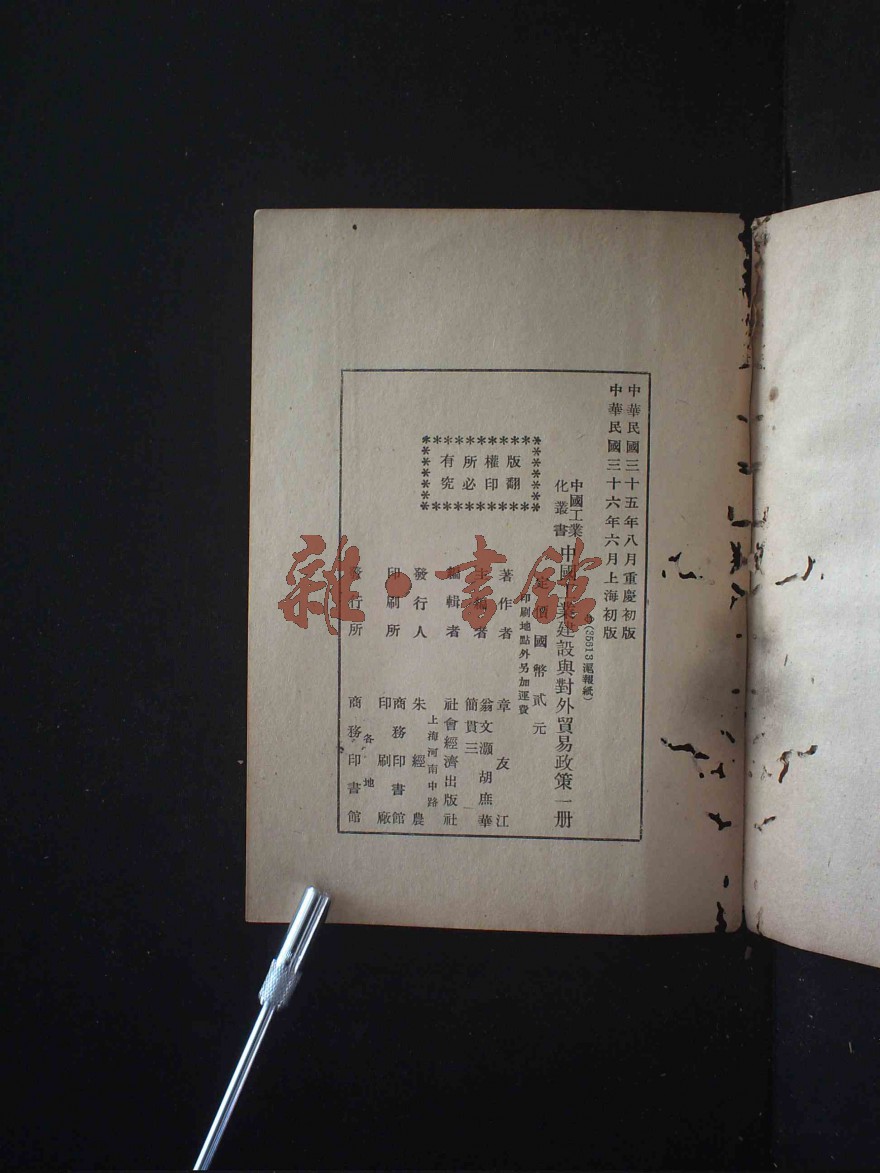 中華民國三十五年八月重慶初版
中華民國三十六年六月上海初版
(35613滬報紙)
中國工業
化叢書
中國工業建設與對外貿易政策一册
定價國幣貳元
印刷地點外另加運費
版權所有
翻印必究
著作者 章友江
主編者 翁文灝 胡庶華
簡貫三
編輯者 社會經濟出版社
發行人 朱經農
上海河南中路
印刷所 商務印書館
印刷廠
各地
發行所 商務印書館
雜·書館